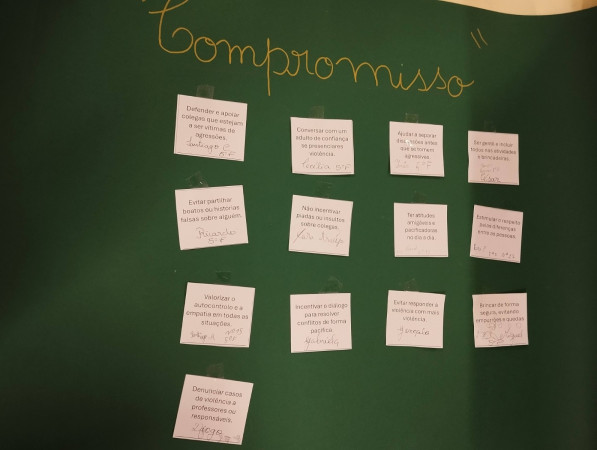 "Compromisso"
Defender e apoiar
colegas que estejam
a ser vítimas de
agressões.
Santiago 5ºF
Conversar com um
adulto de confiança
se presenciares
violência.
5ºF
Ajudar a separar
discussões antes
que se tornem
agressivas.
Ser gentil e incluir
todos nas atividades
e brincadeiras.
Evitar partilhar
boatos ou histórias
falsas sobre alguém.
Ricardo
5ºF
Não incentivar
piadas ou insultos
sobre colegas.
Ter atitudes
amigáveis e
pacificadoras
no dia a dia.
Estimular o respeito
pelas diferenças
entre as pessoas.
Valorizar o
autocontrolo e a
empatia em todas as
situações.
Incentivar o diálogo
para resolver
conflitos de forma
pacífica.
Gabriela
Evitar responder à
violência com mais
violência.
Gonçalo
Brincar de forma
segura, evitando
empurrões e quedas.
Miguel
Denunciar casos
de violência a
professores ou
responsáveis.
Diogo